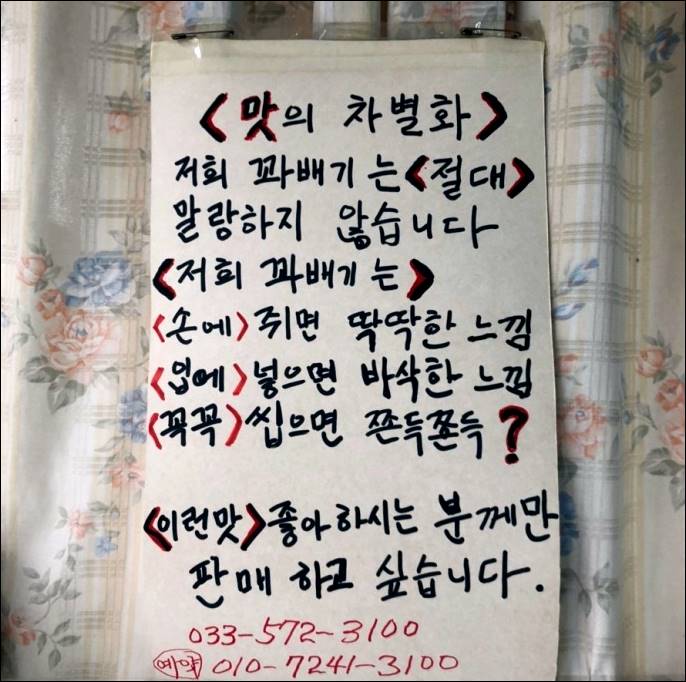 <맛의 차별화>
저희 꽈배기는<절대>
말랑하지 않습니다
<저희 꽈배기는>
<손에>쥐면 딱딱한 느낌
<입에>넣으면 바삭한 느낌
<꼭꼭>씹으면 쫀득쫀득?
<이런맛>좋아하시는 분께만
판매 하고 싶습니다.
033-572-3100
예약 010-7241-3100